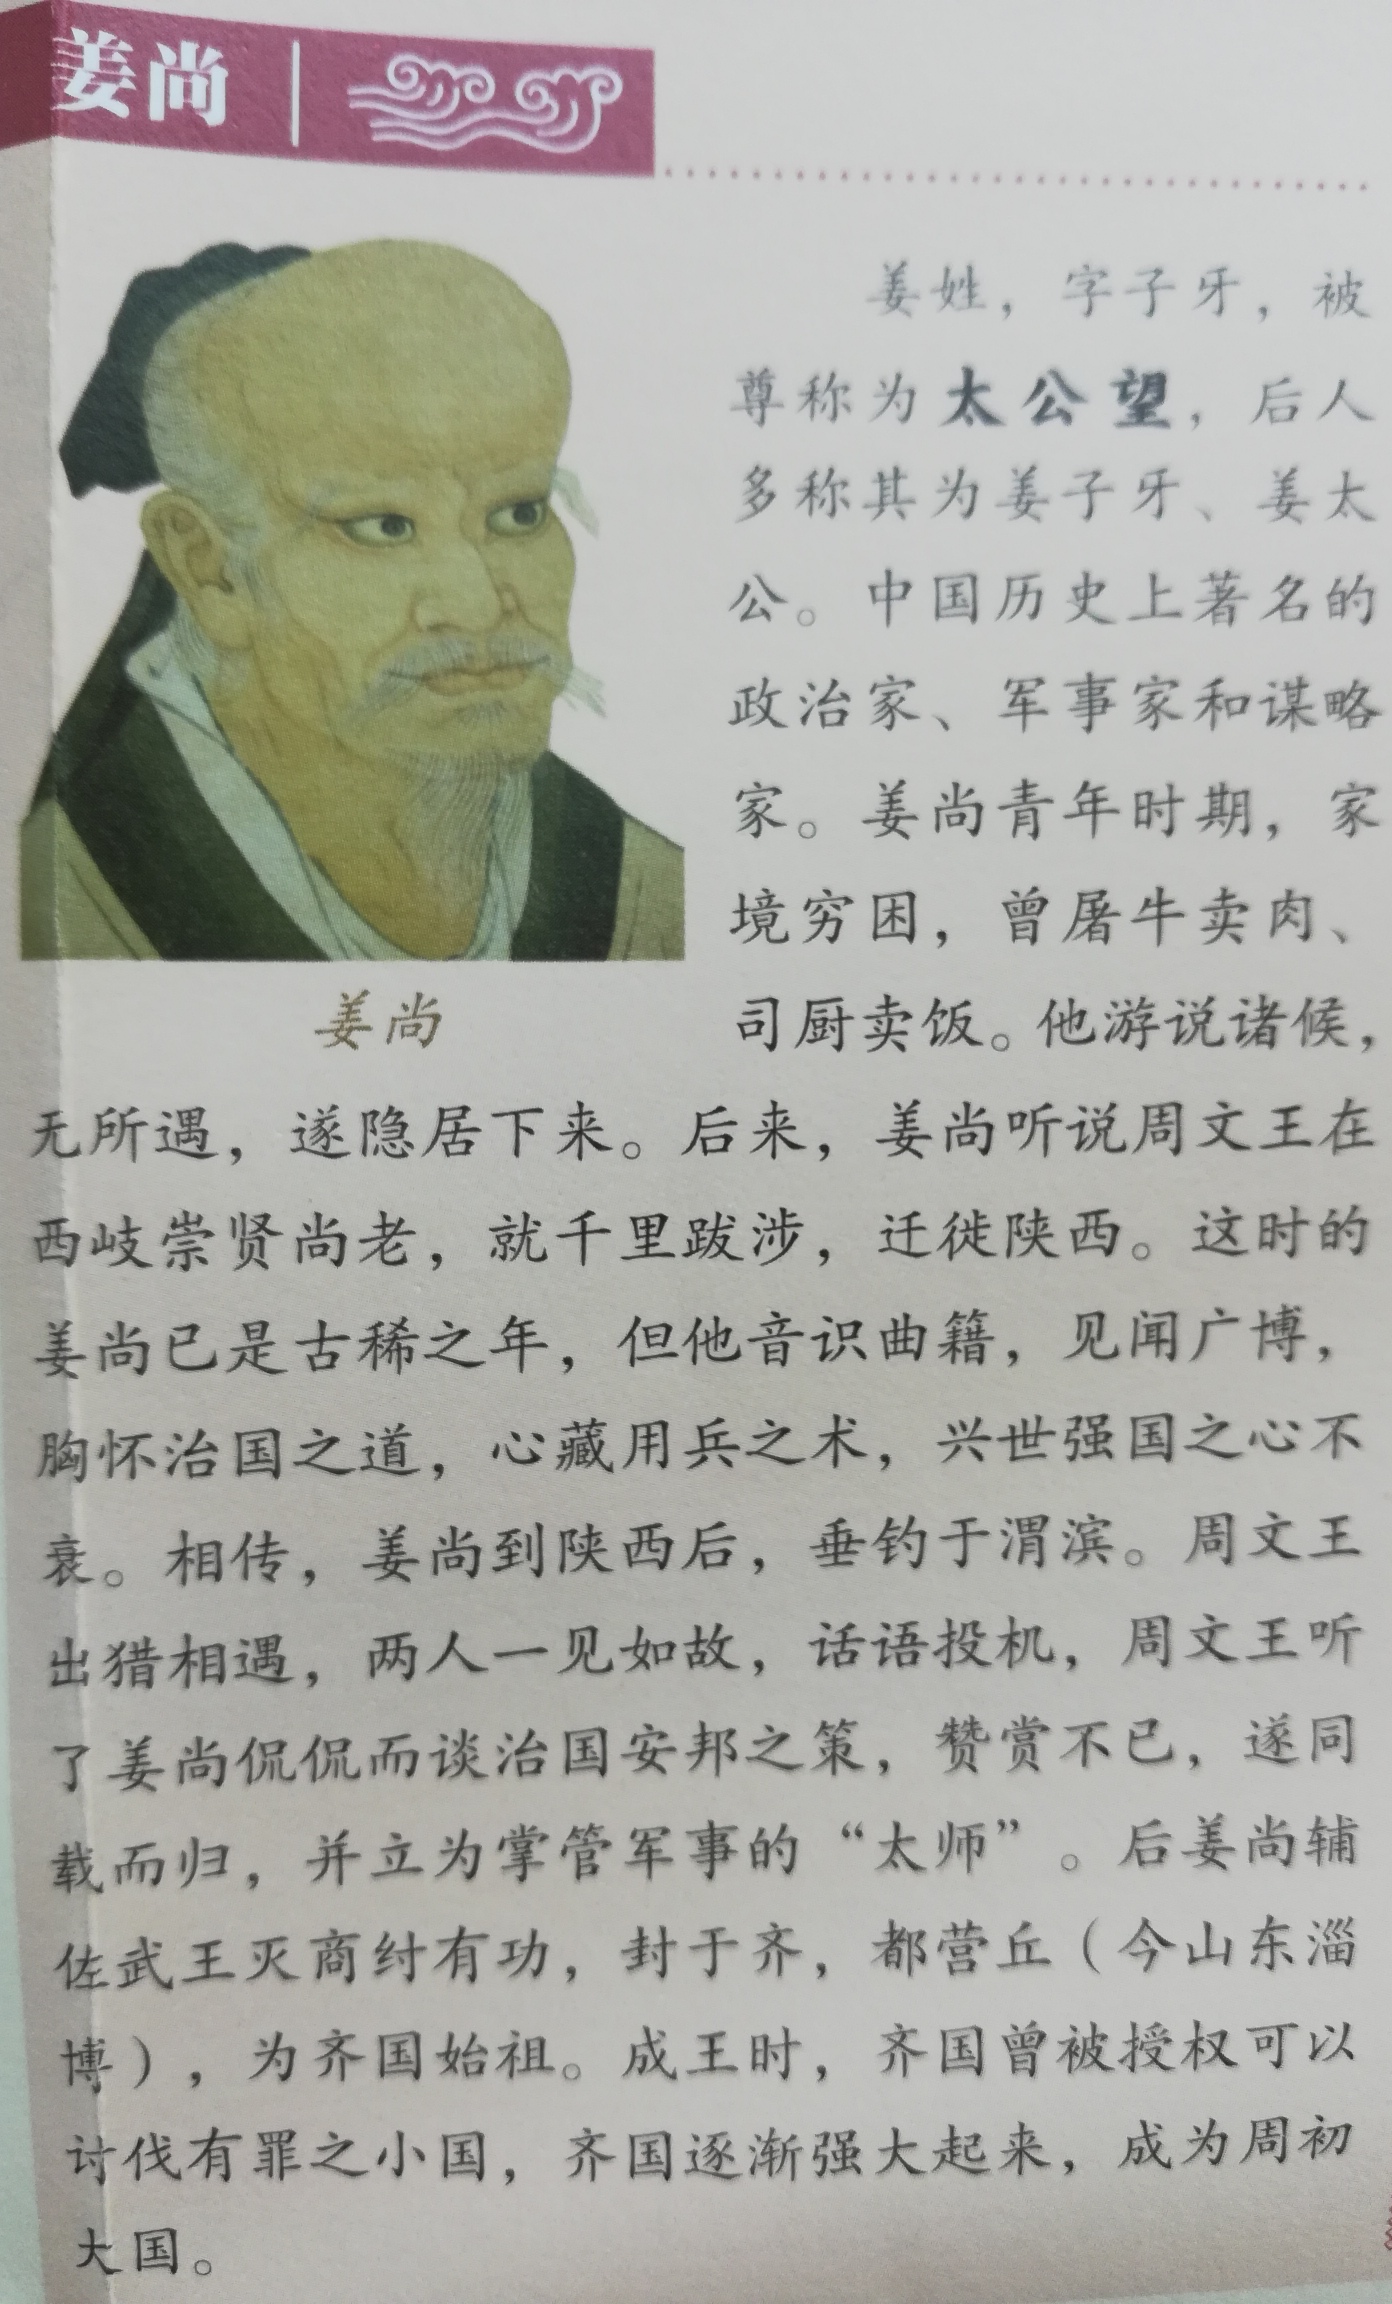 姜尚
姜姓，字子牙，被
尊称为太公望，后人
多称其为姜子牙、姜太
公。中国历史上著名的
政治家、军事家和谋略
家。姜尚青年时期，家
境穷困，曾屠牛卖肉、
司厨卖饭。他游说诸候，
姜尚
无所遇，遂隐居下来。后来，姜尚听说周文王在
西岐崇贤尚老，就千里跋涉，迁徙陕西。这时的
姜尚已是古稀之年，但他音识曲籍，见闻广博，
胸怀治国之道，心藏用兵之术，兴世强国之心不
衰。相传，姜尚到陕西后，垂钓于渭滨。周文王
出猎相遇，两人一见如故，话语投机，周文王听
了姜尚侃侃而谈治国安邦之策，赞赏不已，遂同
载而归，并立为掌管军事的“太师”。后姜尚辅
佐武王灭商纣有功，封于齐，都营丘（今山东淄
博），为齐国始祖。成王时，齐国曾被授权可以
讨伐有罪之小国，齐国逐渐强大起来，成为周初
大国。